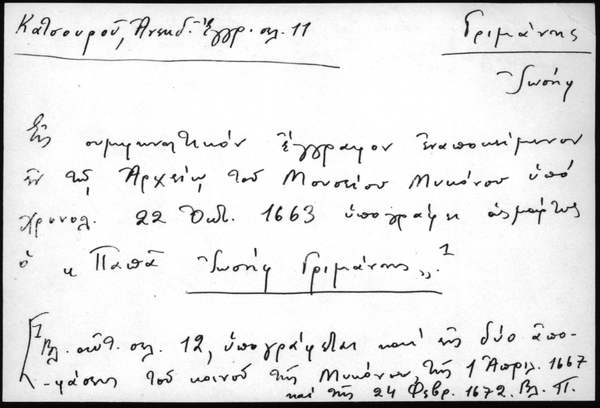 Κατσουροῦ, Ἀνεκδ. Ἔγγρ. σελ. 11
Γριμάνης
Ἰωσήφ
Εἰς συμφωνητικόν ἔγγραφον ἐναποκείμενον
ἐν τῷ Ἀρχείῳ τοῦ Μουσείου Μυκόνου ὑπό
χρονολ. 22 Ὀκτ. 1663 ὑπογράφει ὡς μάρτυς
ὁ «Παπᾶ Ἰωσήφ Γριμάνης».1
[1 Βλ. αὐτ. σελ. 12, ὑπογράφεται καί εἰς δύο ἀπο-
-φάσεις τοῦ κοινοῦ τῆς Μυκόνου τῆς 1 Ἀπριλ. 1667
καί τῆς 24 Φεβρ. 1672. Βλ. Π.